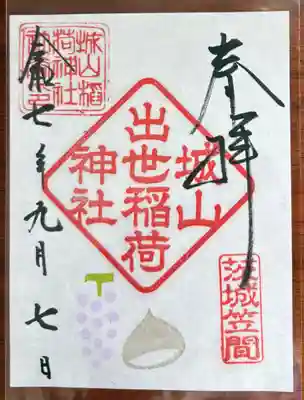 奉拝
城山
出世稲荷
神社
茨城笠間
城山稲
荷神社
令和七年九月七日